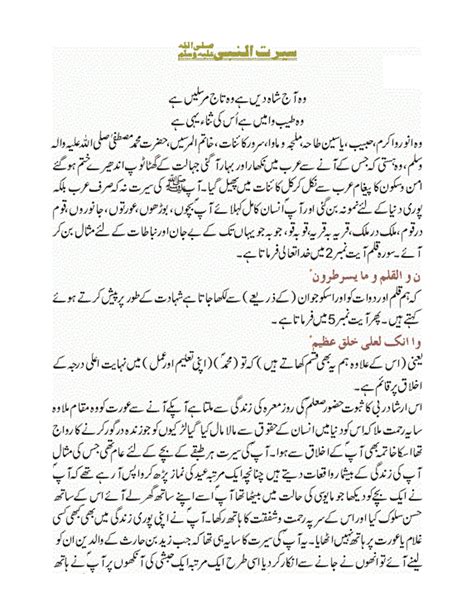 سیرت النبی صلی اللہ علیہ وسلم
وہ آج شاہ دیں ہے وہ تاج مرسلیں ہے
وہ طیب و امیں ہے اُس کی ثناء یہی ہے
وہ انور و اکرم، حبیب، یاسین طاحہ، ملجہ و ماوا، سرور کائنات، خاتم المرسیں، حضرت محمد مصطفیٰ صلی اللہ علیہ والہ
وسلم، وہ ہستی کہ جس کے آنے سے عرب میں نکھار اور بہار آ گئی جہالت کے گھٹا ٹوپ اندھیرے ختم ہو گئے
امن و سکون کا پیغام عرب سے نکل کر کل کائنات میں پھیل گیا۔ آپ ﷺ کی سیرت نہ کہ صرف عرب بلکہ
پوری دنیا کے لئے نمونہ بن گئی اور آپؐ انسان کامل کہلائے آپؐ بچوں، بوڑھوں، عورتوں، جانوروں، قوم
در قوم، ملک در ملک، قریہ بہ قریہ، قو بہ قو، جو بہ جو یہاں تک کے بے جان اور نباطات کے لئے مثال بن کر
آئے۔ سورہ قلم آیت نمبر 2 میں خدا تعالی فرماتا ہے۔
ن و القلم و ما یسرطرون ۘ
کہ ہم قلم اور دوات کو اور اسکو جو ان (کے ذریعے) سے لکھا جاتا ہے شہادت کے طور پر پیش کرتے ہوئے
کہتے ہیں۔ پھر آیت نمبر 5 میں فرماتا ہے۔
و ا انک لعلی خلق عظیم ۘ
یعنی (اس کے علاوہ ہم یہ بھی قسم کھاتے ہیں) کہ تو (محمدؐ) (اپنی تعلیم اور عمل) میں نہایت اعلی درجہ کے
اخلاق پر قائم ہے۔
اس ارشاد ربی کا ثبوت حضور صلعم کی روز معرہ کی زندگی سے ملتا ہے آپکے آنے سے عورت کو وہ مقام ملا وہ
سایہ رحمت ملا کہ اس کو دنیا میں انسان کے حقوق سے مالا مال کیا گیا لڑکیوں کو جو زندہ در گور کرنے کا رواج
تھا اسکا خاتمہ بھی آپؐ کے اخلاق سے ہوا۔ آپؐ کی سیرت ہر طبقے کے بچے کے لئے عام تھی جس کی مثال
آپ کی زندگی کے بیشتار واقعات دیتے ہیں چنانچہ ایک مرتبہ عید کی نماز پڑھ کر واپس آ رہے تھے کہ آپؐ
نے ایک بچے کو دیکھا جو مایوسی کی حالت میں بیٹھا تھا آپؐ اسے اپنے ساتھ گھر لے آئے اس کے ساتھ
حسن سلوک کیا اور اس کے سر پہ رحمت و شفقت کا ہاتھ رکھا۔ آپؐ نے اپنی پوری زندگی میں بھی کبھی کسی
غلام یا عورت پر ہاتھ نہیں اٹھایا۔ یہ آپؐ کی سیرت کا سایہ ہی تھا کہ جب زید بن حارث کے والدین ان کو
لینے آئے تو انھوں نے جانے سے انکار کر دیا اسی طرح ایک مرتبہ ایک حبشی کی آنکھوں پر آپؐ نے ہاتھ